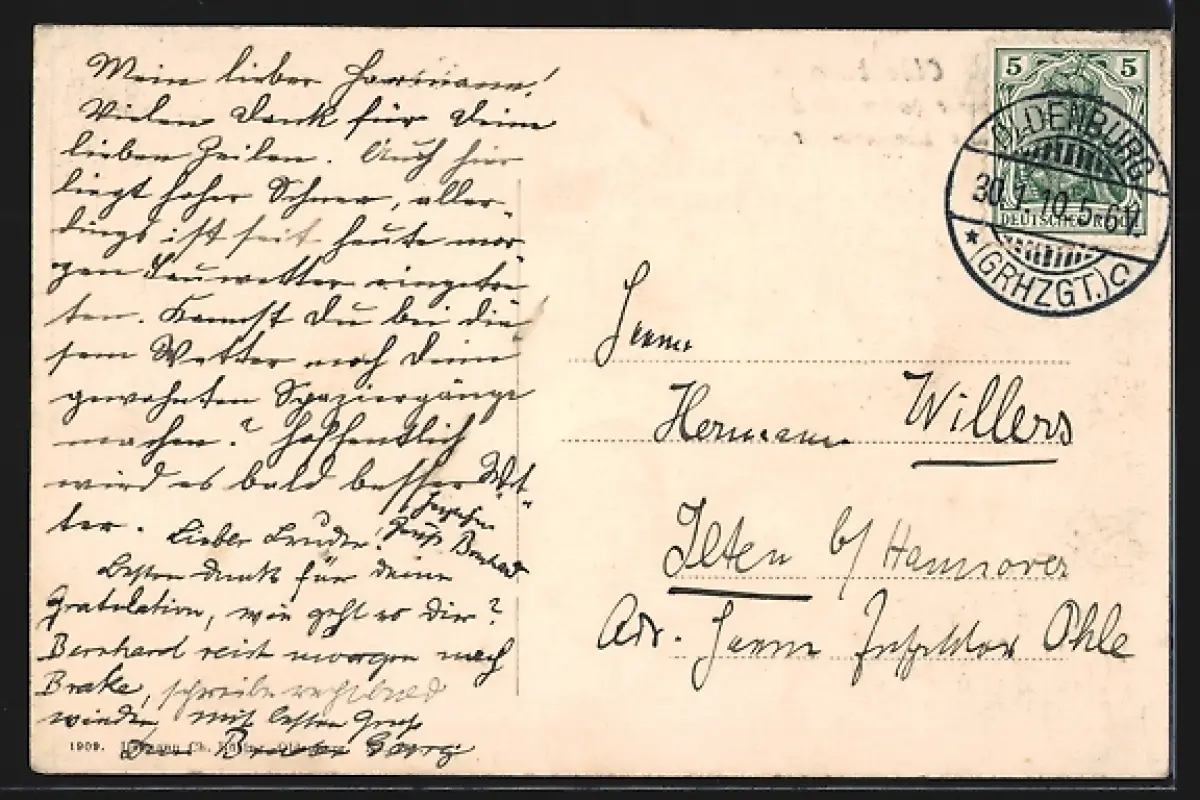 Mein lieber Hermann!
Vielen Dank für Deine
lieben Zeilen. Auch hier
liegt hoher Schnee, aller-
dings ist seit heute mor-
gen Tauwetter eingetre-
ten. Kannst Du bei die-
sem Wetter noch Deine
gewohnten Spaziergänge
machen? Hoffentlich
wird es bald besser Wet-
ter.
Gruß Bernhard
Lieber Bruder!
Besten Dank für deine
Gratulation, wie geht es dir?
Bernhard reist morgen nach
Brake, schreibe recht bald
wieder. Mit besten Gruß
Dein Bruder Georg
1909.
5 5
DEUTSCHES REICH
OLDENBURG
30.1.10.5-6V.
* (GRHZGT.) C
Herrn
Hermann Willers
Ilten b/ Hannover
Adr. Herrn Inspektor Ohle